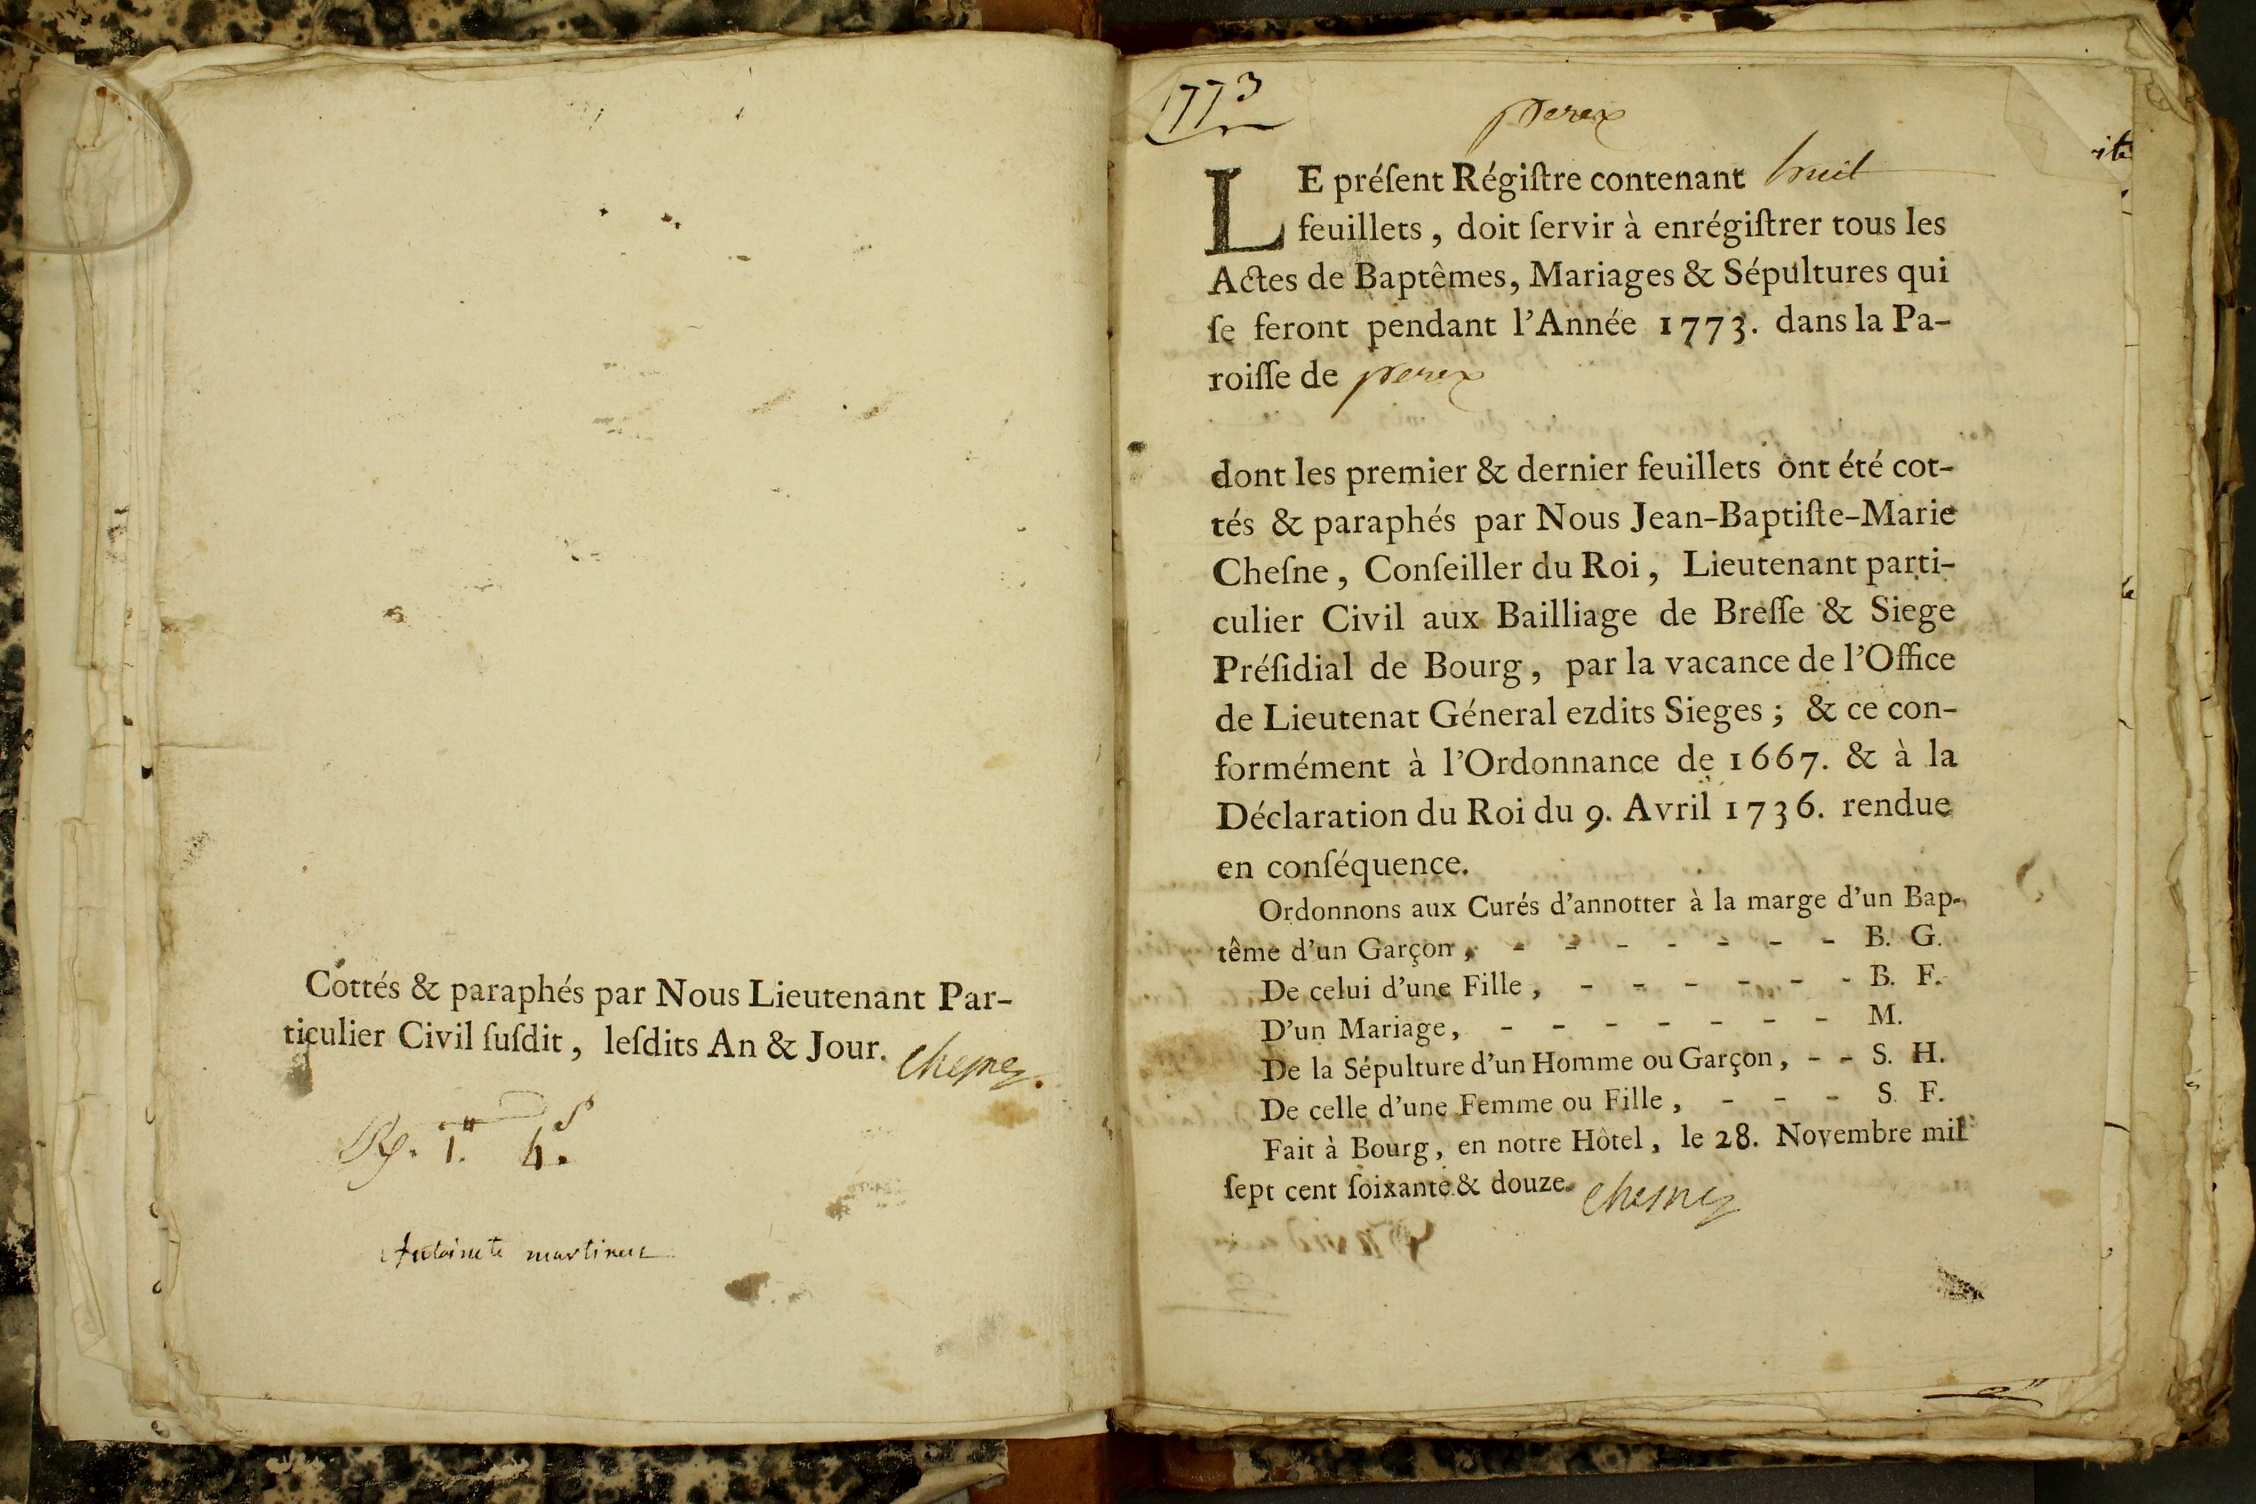 Cottés & paraphés par Nous Lieutenant Par-
ticulier Civil ſuſdit, leſdits An & Jour. Chesne
Antoinete martinent
1773
perex
LE préſent Régiſtre contenant huit
feuillets, doit ſervir à enrégiſtrer tous les
Actes de Baptêmes, Mariages & Sépultures qui
ſe feront pendant l'Année 1773. dans la Pa-
roiſſe de perex
dont les premier & dernier feuillets ont été cot-
tés & paraphés par Nous Jean-Baptiſte-Marie
Cheſne, Conſeiller du Roi, Lieutenant parti-
culier Civil aux Bailliage de Breſſe & Siege
Préſidial de Bourg, par la vacance de l'Office
de Lieutenat Géneral ezdits Sieges; & ce con-
formément à l'Ordonnance de 1667. & à la
Déclaration du Roi du 9. Avril 1736. rendue
en conſéquence.
Ordonnons aux Curés d'annotter à la marge d'un Bap-
tême d'un Garçon, - - - - - - - B. G.
De celui d'une Fille, - - - - - - B. F.
D'un Mariage, - - - - - - - M.
De la Sépulture d'un Homme ou Garçon, - - S. H.
De celle d'une Femme ou Fille, - - - S. F.
Fait à Bourg, en notre Hôtel, le 28. Novembre mil
ſept cent ſoixante & douze. Chesne